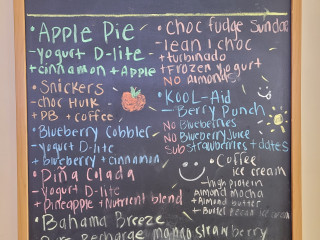 • Apple Pie
- yogurt D-lite
+ cinnamon + Apple
• Snickers
- choc Hulk
+ PB + coffee
• Blueberry Cobbler
- yogurt D-lite
+ blueberry + cinnamon
• Piña Colada
- yogurt D-lite
+ pineapple + Nutrient blend
• Bahama Breeze
Recharge mango strawberry
• Choc fudge Sundae
- lean 1 choc
+ turbinado
+ Frozen yogurt
No Almonds
• Kool-Aid
- Berry Punch
No Blueberries
No Blueberry Juice
Sub Strawberries + dates
• Coffee
ice cream
- high protein
Almond mocha
+ Almond butter